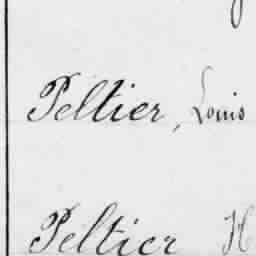 Peltier, Louis
Peltier H